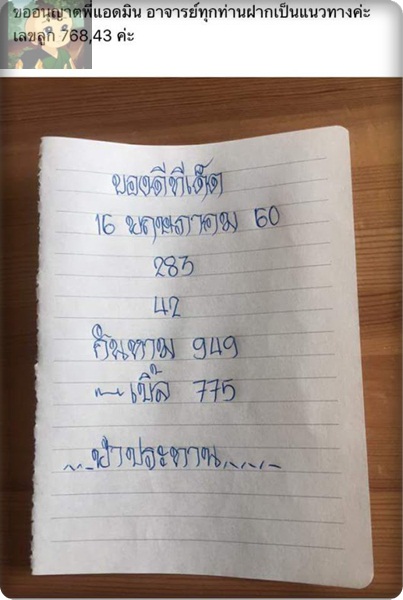 ขออนุญาตพี่แอดมิน อาจารย์ทุกท่านฝากเป็นแนวทางค่ะ
เลขลูก 768,43 ค่ะ
ของดีทีเด็ด
16 พฤษภาคม 60
283
42
กันหาม 949
เบิ้ล 775
ฟ้าประทาน